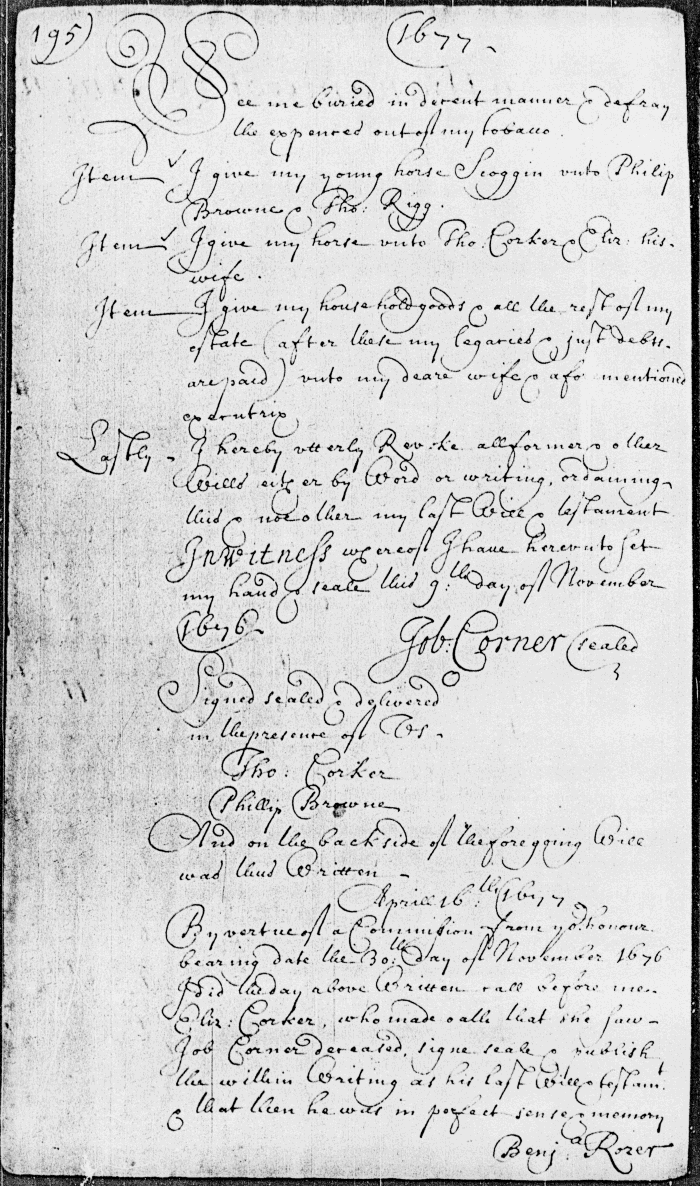 195)
(1677
See me buried in decent manner & defray
the expences out of my tobacco.
Item I give my young horse Scoggin vnto Philip
Browne & Tho: Rigg.
Item I give my horse vnto Tho: Corker & Eliz: his
wife.
Item I give my household goods & all the rest of my
estate (after these my legacies & just debts
are paid) vnto my deare wife & afo mentioned
executrix
Lastly I hereby vtterly Revoke all former & other
Wills either by Word or writing, ordaining
this & noe other my last Will & testament
In witness whereof I have herevnto set
my hand & seale this 9:th day of November
(1676
Job: Corner (sealed
Signed sealed & delivered
in the presence of Vs
Tho: Corker
Phillip Browne
And on the backside of the foregging Will
was thus Written
Aprill 16:th (1677
By vertue of a Commission from yor honour
bearing date the 30:th day of November 1676
I did the day above Written call before me
Eliz: Corker, who made oath that she saw
Job Corner deceased, signe seale & publish
the within Writing as his last Will & testamt
& that then he was in perfect sense & memory
Benja: Rozer